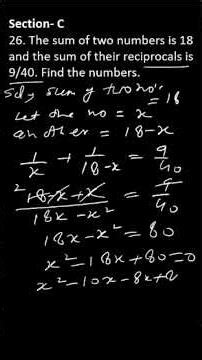 Section- C
26. The sum of two numbers is 18
and the sum of their reciprocals is
9/40. Find the numbers.
Soly sum of two no's
= 18
Let the no = x
another = 18-x
1/x + 1/18-x = 9/40
2 18-x+x/18x-x² = 9/40
18x-x² = 80
x²-18x+80=0
x²-10x-8x+8